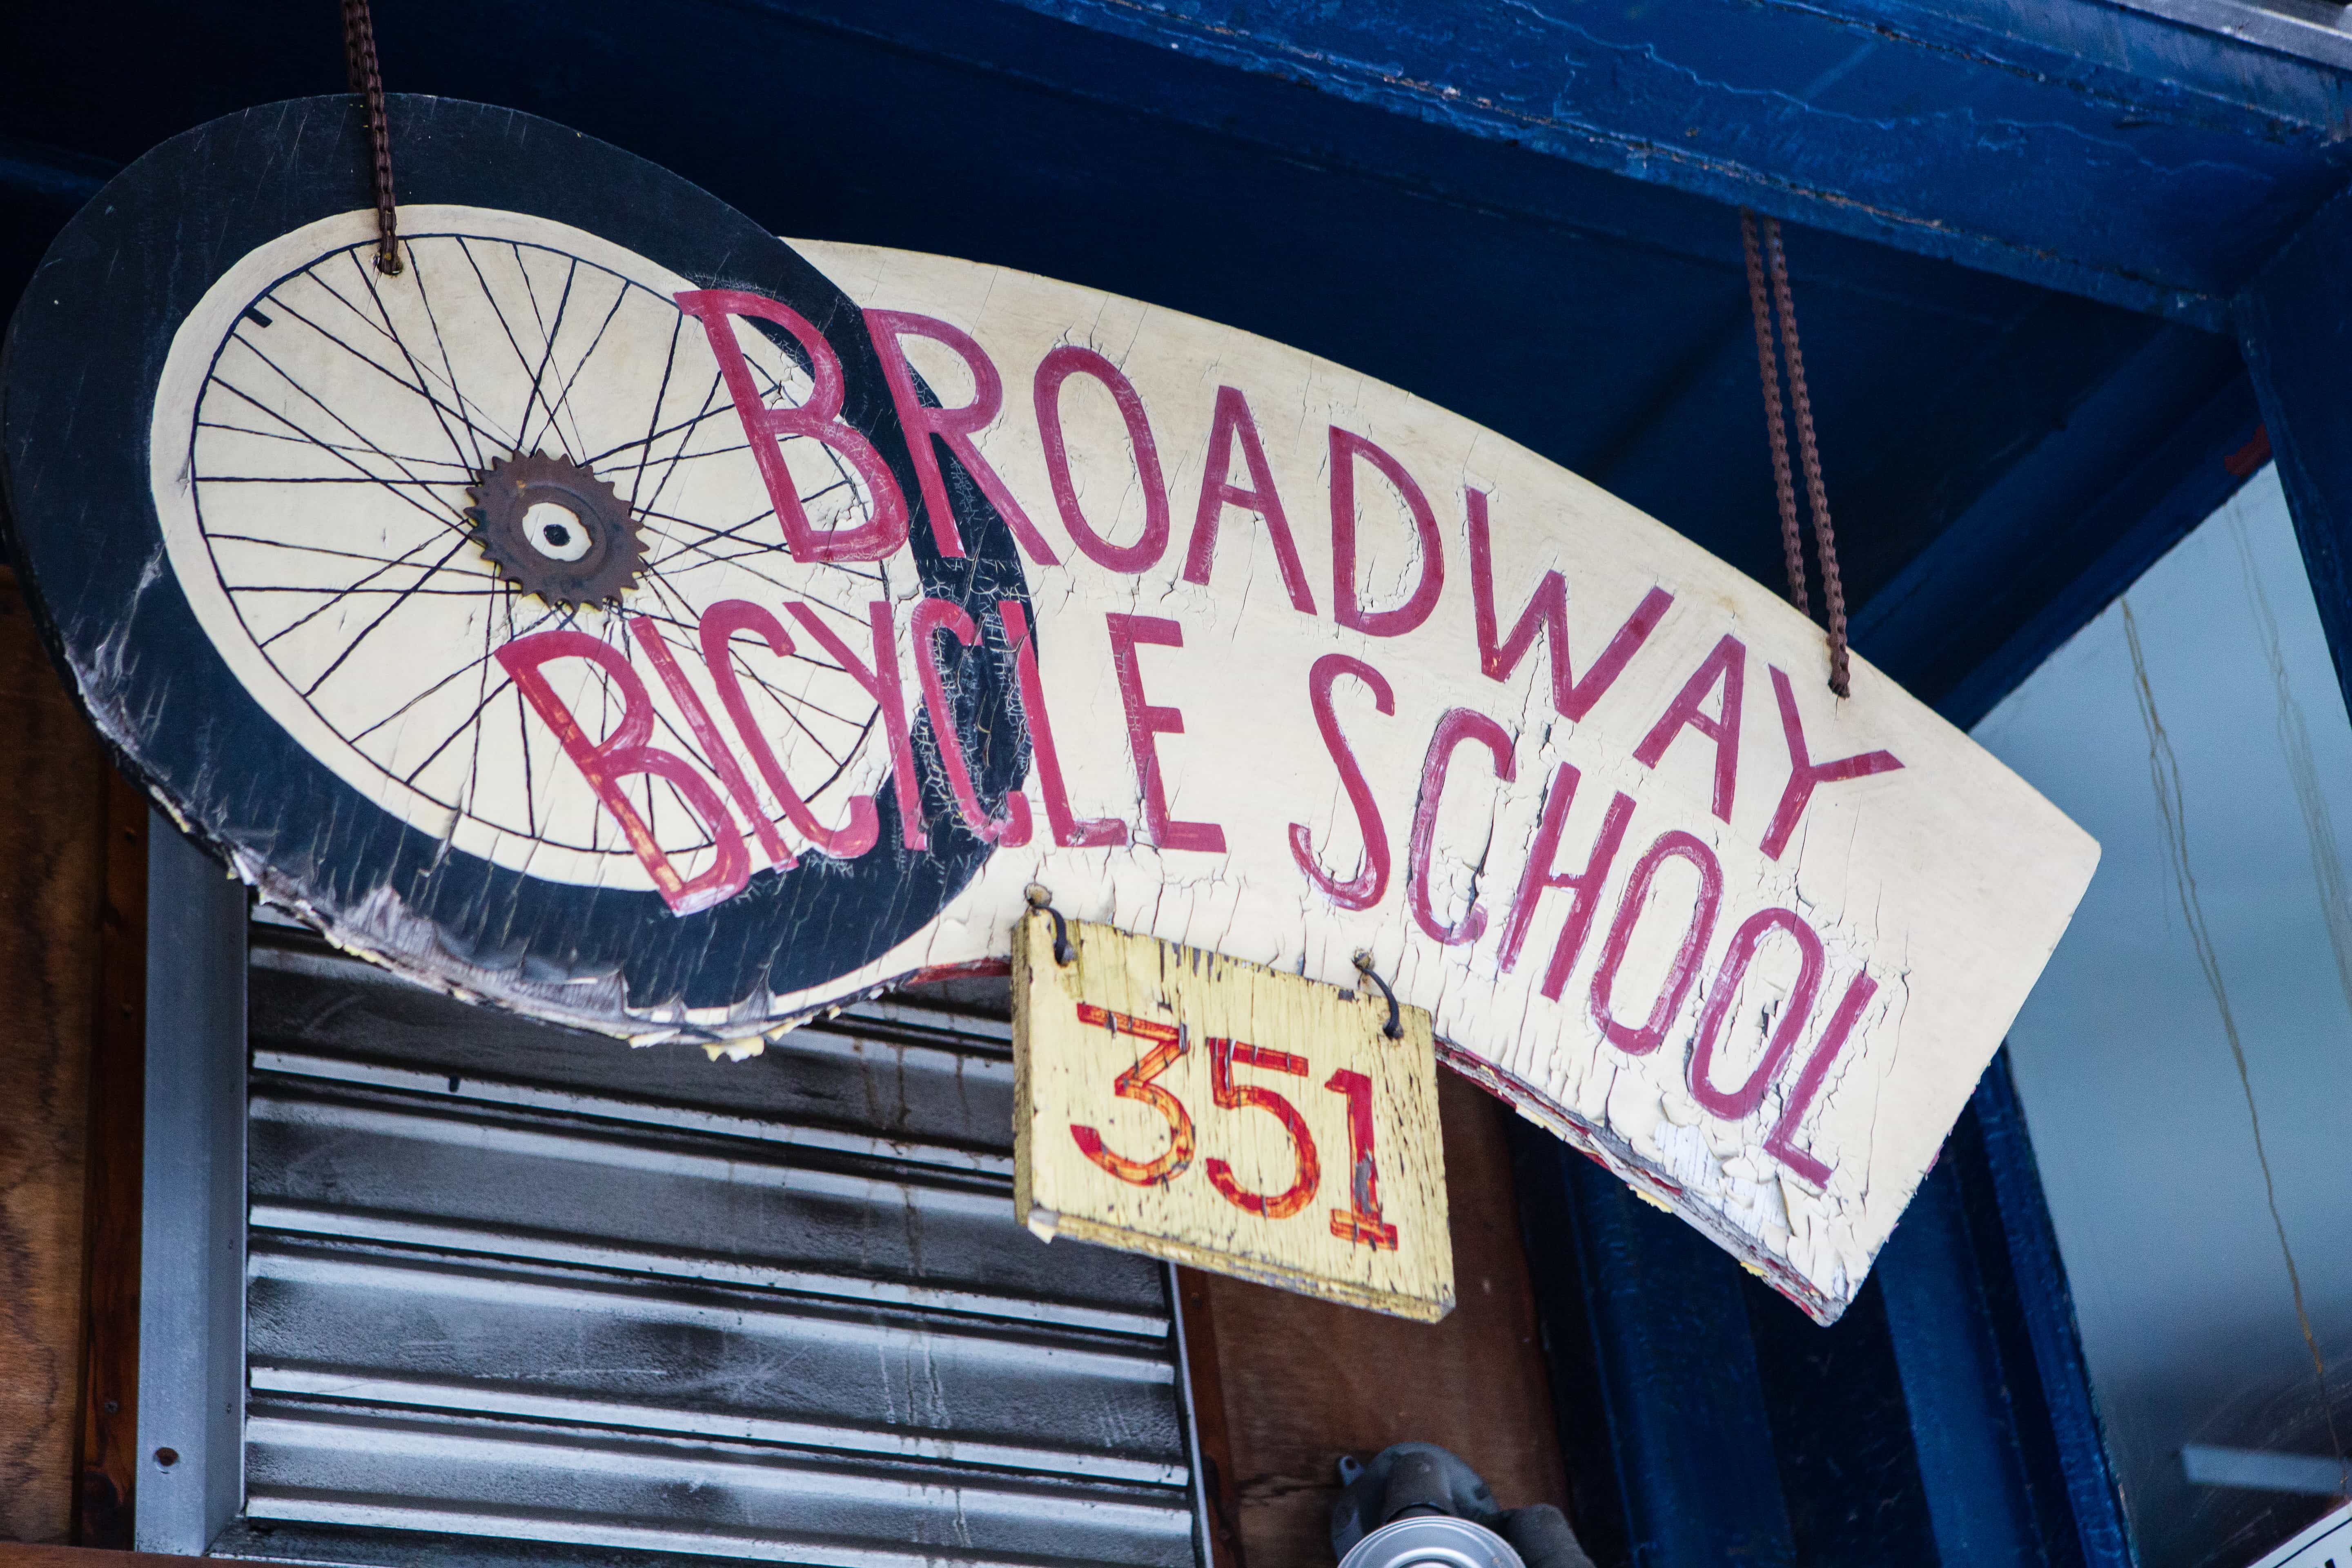 BROADWAY
BICYCLE SCHOOL
351